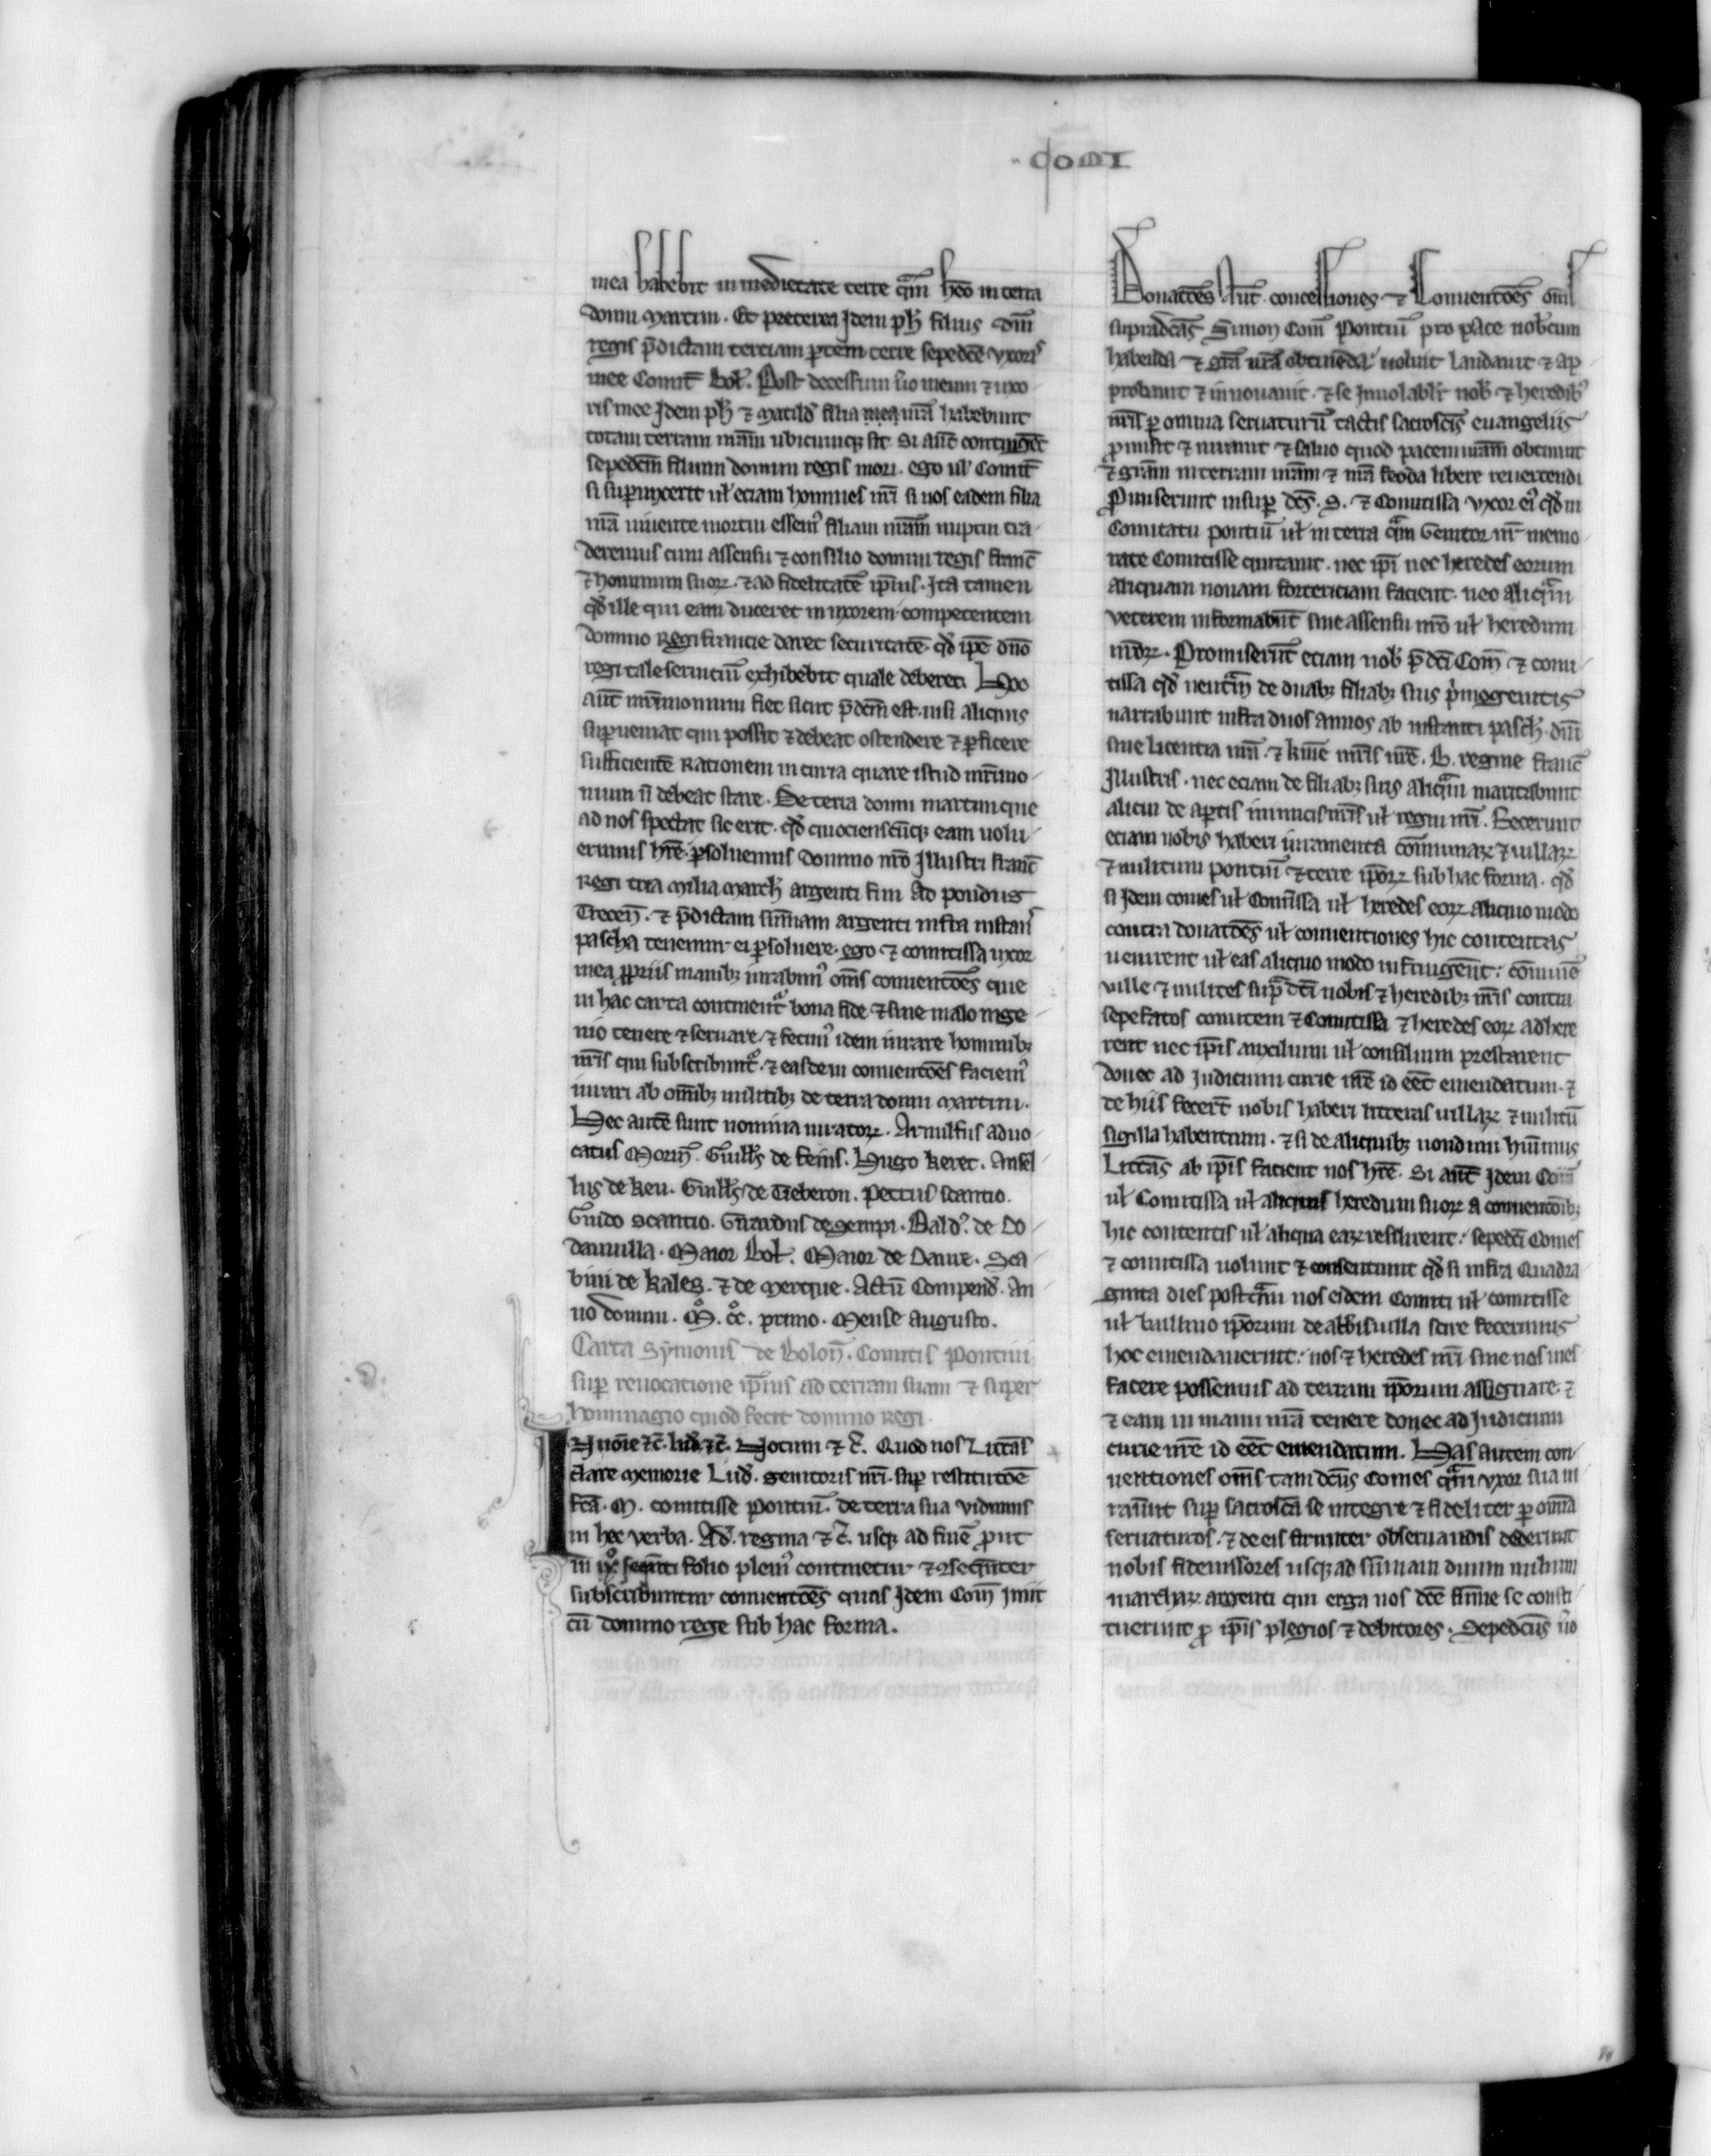 comi
mea habebit in medietate terre quā hēo in terra
domni martini. Et preterea Idem pħ filius dñi
regis p̄dictam terciam ꝑtem terre sepedcē vxoris
mee Comit̄ Bol̄. Post decessum ũo meum ⁊ uxo
ris mee Idem pħ ⁊ Matild̄ filia mea nr̄a habebunt
totam terram nr̄am ubicunqꝫ sit. Si aut̄ contingeret
sepedcm̄ filium domini regis mori. ego ul̄ Comit̄
si suꝑuixerit ul̄ eciam homines nr̄i si nos eadem filia
nr̄a uiuente mortui essemꝰ filiam nr̄am nuptui tra
deremus cum assensu ⁊ consilio domini regis franc̄
⁊ hominum suoꝝ ⁊ ad fidelitatē ipsius. Ita tamen
qd̄ ille qui eam duceret in uxorem competentem
domino Regi francie daret securitatē. qd̄ ipse dn̄o
regi tale seruiciū exhibebit quale deberet. Hoc
aut̄ mr̄imonium fiet sicut p̄dcm̄ est. nisi aliquis
suꝑueniat qui possit ⁊ debeat ostendere ⁊ ꝑficere
sufficientē Rationem in curia quare istud mr̄imo
nium ñ debeat stare. De terra domni martini que
ad nos spectat sic erit. qd̄ quociens cūqꝫ eam uolu
erimus hr̄e. ꝑsoluemus domino nr̄o Illustri franc̄
Regi tria Milia march̄ argenti fini ad pondus
Trecen̄. ⁊ p̄dictam sūmam argenti infra instans
pascha tenemur ei ꝑsoluere. ego ⁊ comitissa uxor
mea ꝓpriis manibꝫ iurabimꝰ om̄s conuentōes que
in hac carta continentur bona fide ⁊ sine malo inge
nio tenere ⁊ seruare. ⁊ fecimꝰ idem iurare hominibꝫ
nr̄is qui subscribuntur. ⁊ easdem conuentōes faciemꝰ
iurari ab om̄ibꝫ militibꝫ de terra domni martini.
Hec autē sunt nomina iuratoꝝ. Arnulfus aduo
catus Morin̄. Guill̄s de feins. Hugo keret. Ansel
lus de keu. Guill̄s de Tieberon. Petrus scantio.
Guido scantio. Girardus de sempi. Bald̄. de Do
dauuilla. Maior Bol̄. Maior de Danre. Sca
bini de kales. ⁊ de Merque. Actū Compend̄. An
no domini. M̊. CC̊. primo. Mense Augusto.
Carta Symonis de Bolon̄. Comitis Pontiui
suꝑ reuocatione ipsius ad terram suam ⁊ super
hominagio quod fecit domino Regi.
IN noīe ⁊c̄. lud̄. ⁊c̄. Notum ⁊c̄. Quod nos Litt̄as
clare memorie Lud̄. genitoris nr̄i. suꝑ restitutōe
fcā. M. comitisse Pontiū. de terra sua vidimus
in hec verba. Ad̄. regina ⁊c̄. usqꝫ ad finē prout
in seq̄nti folio pleniꝰ continetur ⁊ ꝯseq̄nter
subscribuntur conuentōes quas Idem Com̄ Iniit
cū domino rege sub hac forma.
Donatōes siue concessiones ⁊ Conuentōes om̄s
supradcās Simon Com̄ Pontiū pro pace nobcum
habenda ⁊ gr̄a nr̄a obtinēda. uoluit laudauit ⁊ ap
probauit ⁊ innouauit. ⁊ se Inuiolabilr̄ nob̄ ⁊ heredibꝫ
nr̄is ꝑ omnia seruaturū tactis sacroscīs euangeliis
promisit ⁊ iurauit ⁊ saluo quod pacem nr̄am obtinuit
⁊ gr̄am in terram nr̄am ⁊ nr̄a feoda libere reuertendi
Promiserunt insuꝑ dcs̄. S. ⁊ Comitissa vxor eiꝰ qd̄ in
Comitatu pontiū ul̄ in terra quā Genitor nr̄ memo
rate Comitisse quitauit. nec ipsi nec heredes eorum
aliquam nouam forterciam facient. nec aliquā
veterem informabūt sine assensu nr̄o ul̄ heredum
nr̄oꝝ. Promiserūt eciam nob̄ p̄dcī Com̄ ⁊ comi
tissa qd̄ neutrā de duabꝫ filiabꝫ suis p̄mogenitis
maritabunt infra duos annos ab instanti pasch̄. dn̄i
sine licentia nr̄a. ⁊ kr̄me mr̄is nr̄e. B. regine franc̄
Illustris. nec eciam de filiabꝫ suis aliquā maritabunt
alicui de aꝑtis inimicis nr̄is ul̄ regni nr̄i. Fecerunt
eciam nobis haberi iuramenta cōmuniaꝝ ⁊ uillaꝝ
⁊ militum pontiui ⁊ terre ipsoꝝ sub hac forma. qd̄
si Idem comes ul̄ Comitissa ul̄ heredes eoꝝ aliquo modo
contra donatōes ul̄ conuentiones hic contentas
uenirent ul̄ eas aliquo modo infringerent: cōmunie
ville ⁊ milites supradcī nobis ⁊ heredibꝫ nr̄is contra
sepefatos comitem ⁊ Comitissā ⁊ heredes eoꝝ adhere
rent nec ipsis auxilium ul̄ consilium prestarent
donec ad Iudicium curie nr̄e id eēt emendatum. ⁊
de hiis fecert̄ nobis haberi litteras uillaꝝ ⁊ militū
sigilla habentium. ⁊ si de aliquibꝫ nondum hūimus
Litt̄as ab ipsis facient nos hr̄e. Si aut̄ Idem Com̄
ul̄ Comitissa ul̄ aliquis heredum suoꝝ a conuentōibꝫ
hic contentis ul̄ aliqua eaꝝ resilirent: sepedcī Comes
⁊ comitissa uolunt ⁊ consentiunt qd̄ si infra Quadra
ginta dies postquā nos eidem Comiti ul̄ comitisse
ul̄ baillino ipsorum de abbisuilla scire fecerimus
hoc emendauerint: nos ⁊ heredes nr̄i sine nos mes
facere possemus ad terram ipsorum assignare. ⁊
⁊ eam in manu nr̄a tenere donec ad Iudicium
curie nr̄e id eēt emendatum. Has autem con
uentiones om̄s tam dcūs Comes quā vxor sua iu
rauert̄ suꝑ sacroscā se integre ⁊ fideliter ꝑ omnia
seruaturos. ⁊ de eis firmiter obseruandis dederunt
nobis fideiussores usqꝫ ad sūmam duum milium
marchaꝝ argenti qui erga nos dcē sūme se consti
tuerunt ꝓ ipsis plegios ⁊ debitores. Sepedcūs ũo